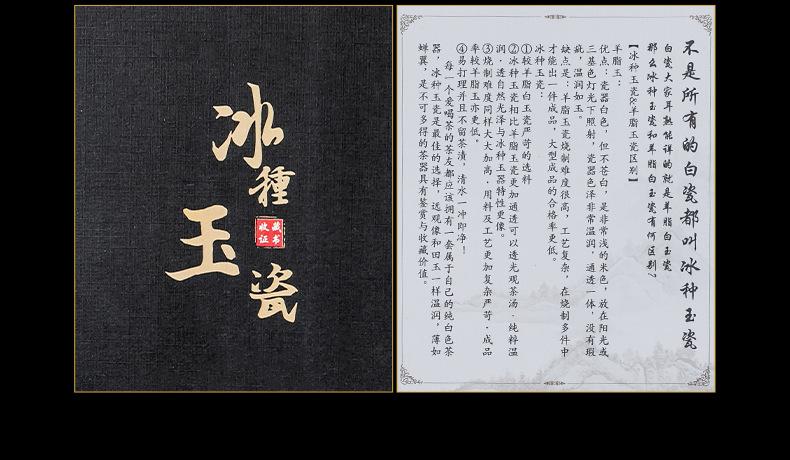 冰種
玉瓷
收藏
证书
不是所有的白瓷都叫冰种玉瓷
白瓷大家耳熟能详的就是羊脂白玉瓷
那么冰种玉瓷和羊脂白玉瓷有何区别?
【冰种玉瓷&羊脂玉瓷区别】
羊脂玉:
优点:瓷器白色,但不苍白,是非常浅的米色,放在阳光或
三基色灯光下照射,瓷器色泽非常温润,通透一体,没有瑕
疵,温润如玉。
缺点是:羊脂玉瓷烧制难度很高,工艺复杂,在烧制多件中
才能出一件成品,大型成品的合格率更低。
冰种玉瓷:
①较羊脂白玉瓷严苛的选料
②冰种玉瓷相比羊脂玉瓷更加通透可以透光观茶汤·纯粹温
润·透自然光泽与冰种玉器特性更像。
③烧制难度同样大大加高·用料及工艺更加复杂严苛·成品
率较羊脂玉亦更低。
④易打理并且不留茶渍,清水一冲即净!
每一个爱喝茶的茶友都应该拥有一套属于自己的纯白色茶
器,冰种玉瓷是最佳的选择,远观像和田玉一样温润,薄如
蝉翼,是不可多得的茶器具有鉴赏与收藏价值。